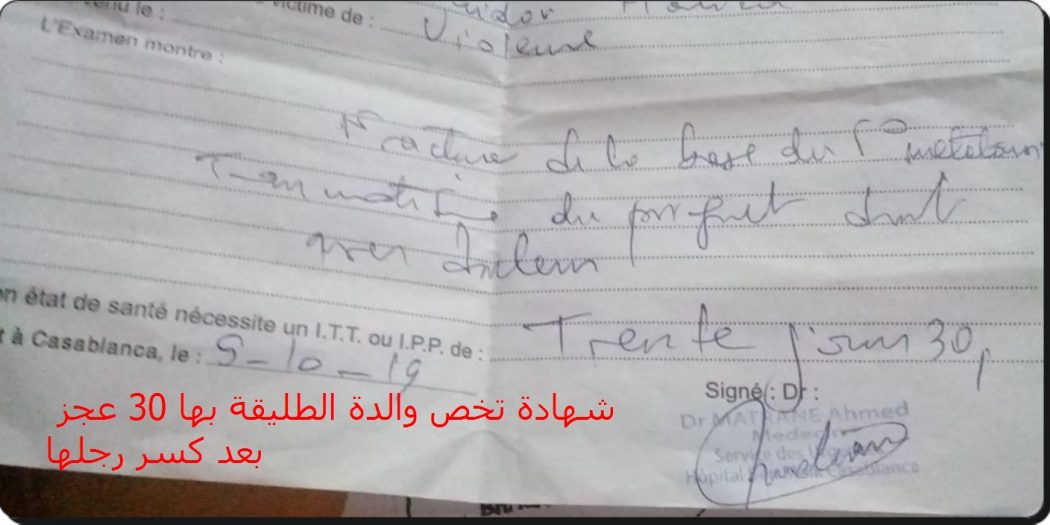 victime de :
Violence
L'Examen montre :
Fracture de la base du 5°
Traumatisme du poignet droit
avec douleur
état de santé nécessite un I.T.T. ou I.P.P. de : Trente jours 30,
à Casablanca, le : 9-10-19
Signé : Dr :
Dr MATRANE Ahmed
Medecin
Service des
Hôpital Casablanca
شهادة تخص والدة الطليقة بها 30 عجز
بعد كسر رجلها